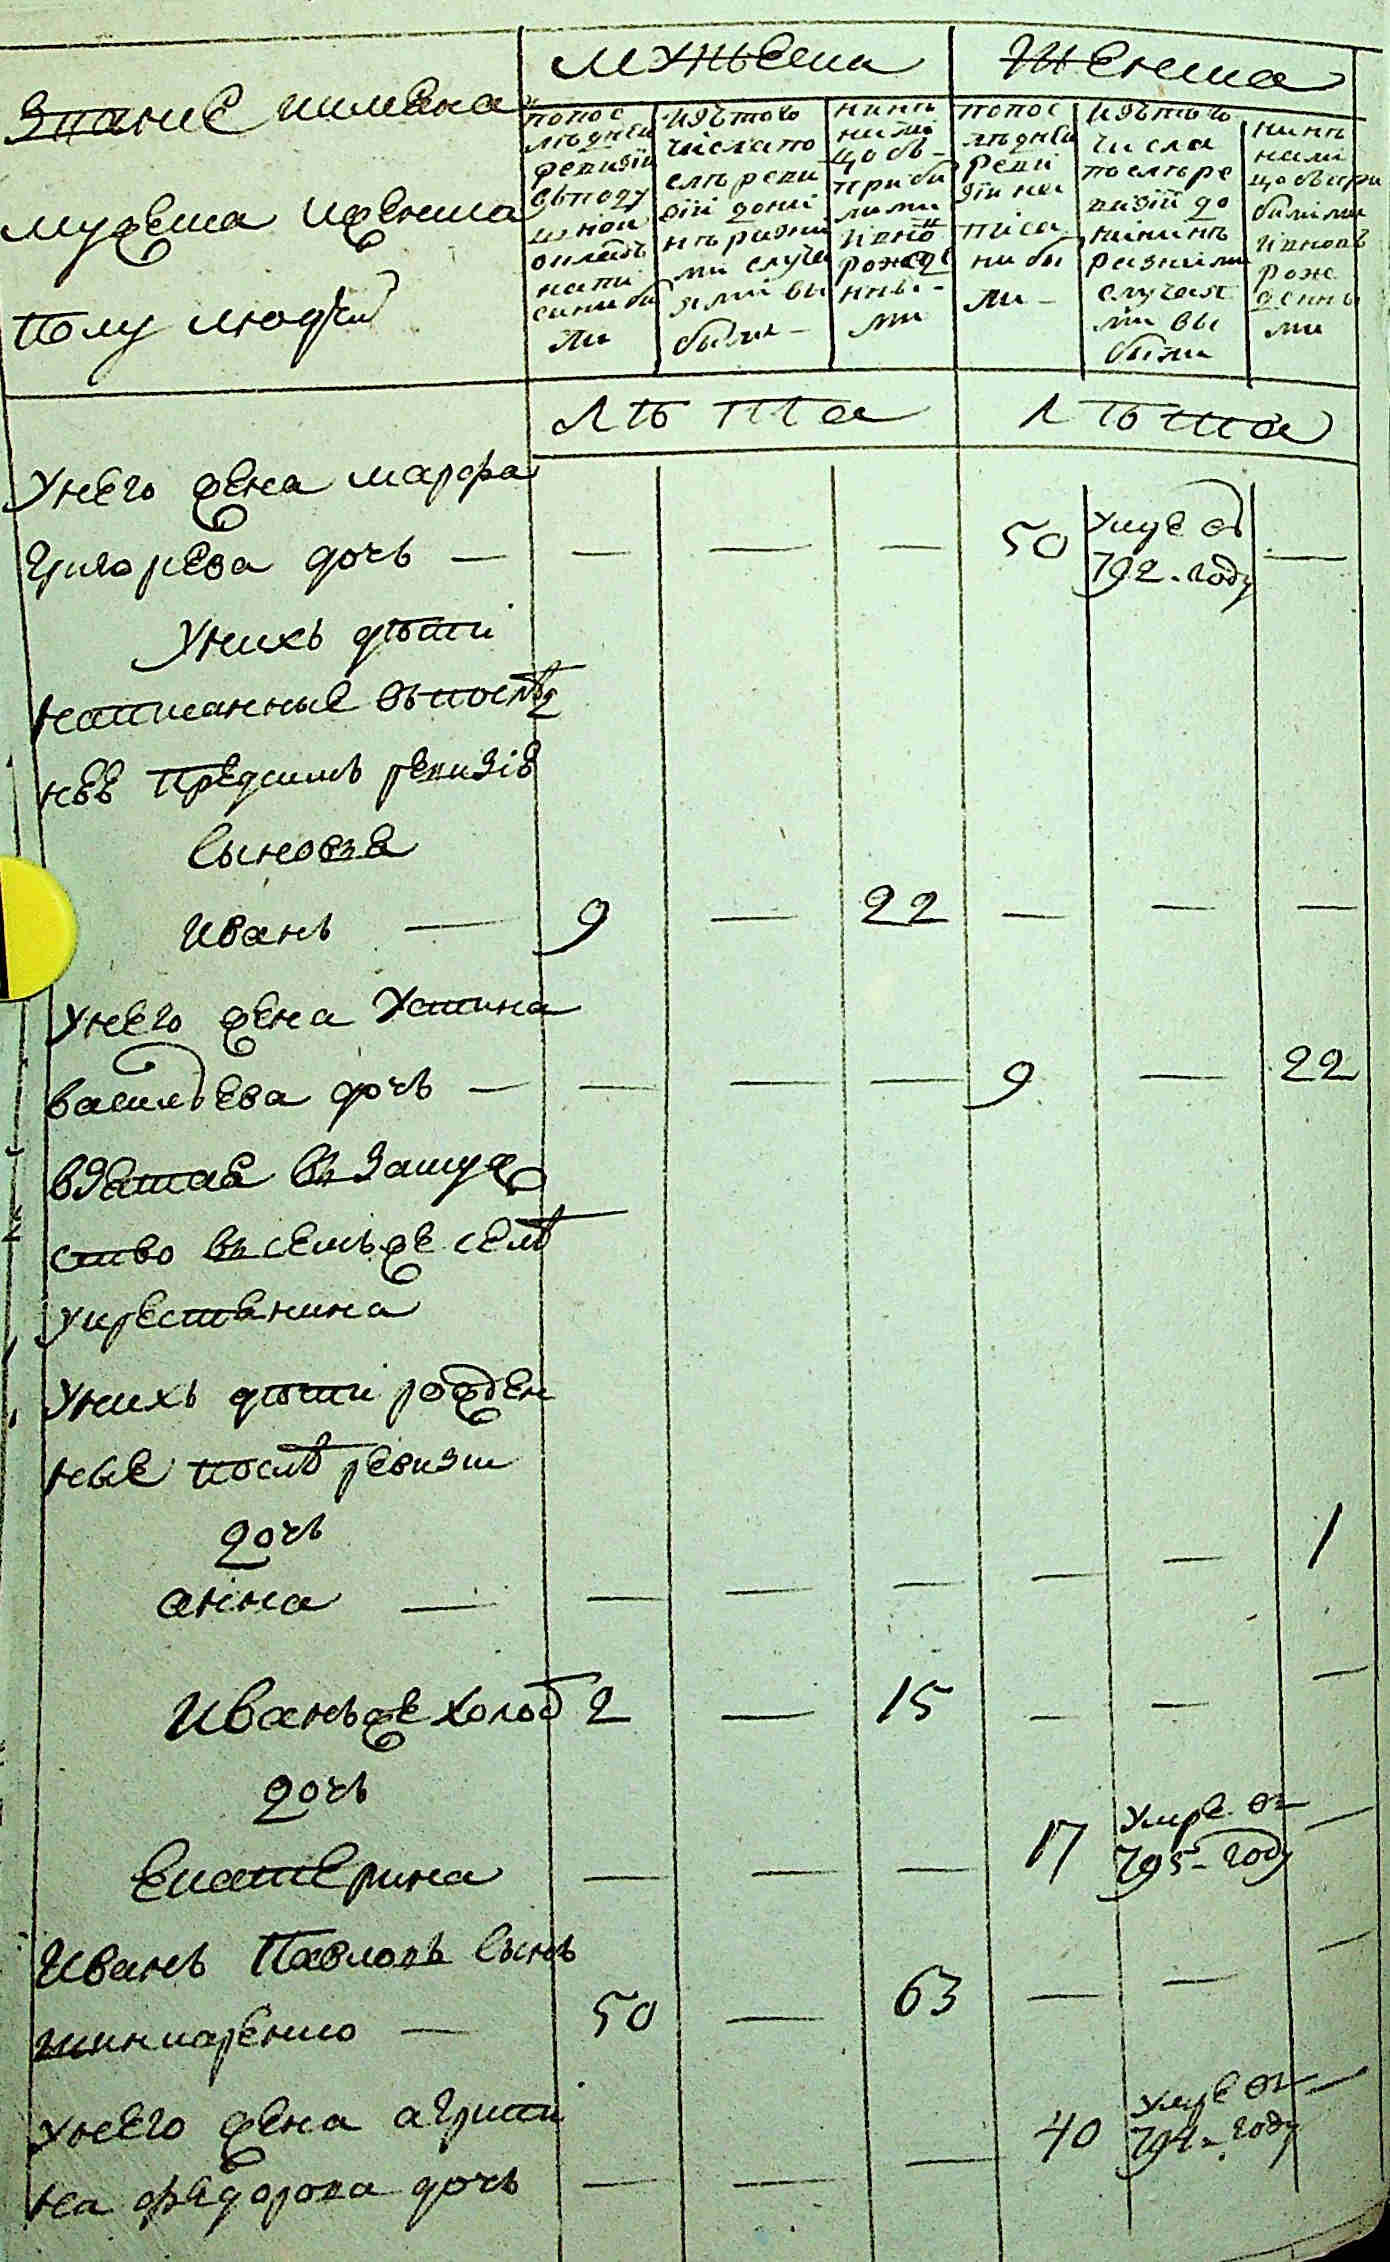 мужеска
женска
Званiе и имена
мужеска и женска
полу людей
по пос
лѣдней
ревизiи
въ поду
шной
окладъ
напи
саны бы
ли
изъ того
числа по
слѣ реви
зiи до ни
нѣ разни
ми случа
ями вы
были
нинѣ
на ли
цо съ
при бы
лыми
и внов
рожде
нны
ми
по пос
лѣдней
реви
зiи на
писа
ны бы
ли
изъ того
числа
по слѣ ре
визiи до
нинѣ
разними
случая
ми вы
были
нинѣ
на ли
цо съ при
былыми
и вновь
рож
денны
ми
лѣта
лѣта
у него жена марфа
григорьева дочь — — — — 50 умре въ 792. году —
у нихъ дѣти
написанные въ послѣд
нее предсимъ ревизiе
сыновья
Иванъ — 9 — 22 — — —
у него жена Устина
васильева дочь — — — — 9 — 22
взятая въ замуж
ство въ семъ же селѣ
у крестянина
у нихъ дѣти рожден
ные послѣ ревизiи
дочь
анна — — — — — — 1
Иванъ же холос 2 — 15 — — —
дочь
Екатерина — — — 17 умре въ 795 году —
Иванъ Павловъ сынъ
50 — 63 — — —
у него жена агрипи
на федорова дочь — — — 40 умре въ 794 году —